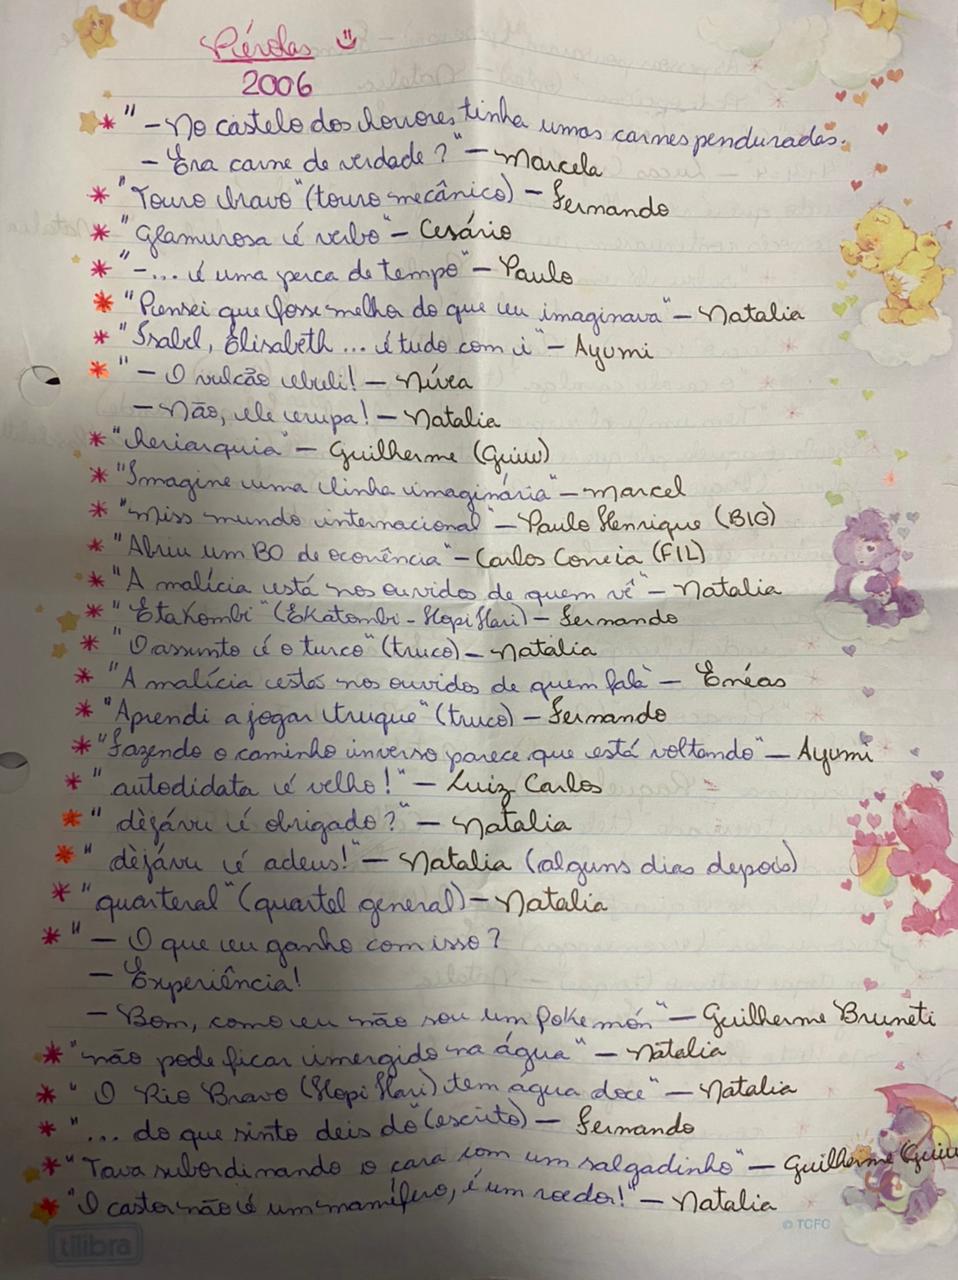 Pérolas
2006
* "- No castelo dos horrores tinha umas carnes penduradas.
- Era carne de verdade?" - Marcela
* "Touro bravo" (touro mecânico) - Fernando
* "Glamurosa é verbo" - Cesário
* "-... é uma perca de tempo" - Paulo
* "Pensei que fosse melho do que eu imaginava" - Natalia
* "Isabel, Elisabeth ... é tudo com i" - Ayumi
* "- O vulcão ebuli! - Nívea
- Não, ele erupa! - Natalia
* "heriarquia" - Guilherme (Guiw)
* "Imagine uma linha imaginária" - Marcel
* "Miss mundo internacional" - Paulo Henrique (BIO)
* "Abriu um BO de econência" - Carlos Correia (FIL)
* "A malícia está nos ouvidos de quem vê" - Natalia
* "Etakombi" (Ekatombi - Hopi Hari) - Fernando
* "O assunto é o turco" (truco) - Natália
* "A malícia estás nos ouvidos de quem fala" - Enéas
* "Aprendi a jogar truque" (truco) - Fernando
* "Fazendo o caminho inverso parece que está voltando" - Ayumi
* "autodidata é velho!" - Luiz Carlos
* "dèjávu é obrigado?" - Natalia
* "dèjávu é adeus!" - Natalia (alguns dias depois)
* "quarteral" (quartel general) - Natalia
* "- O que eu ganho com isso?
- Experiência!
- Bom, como eu não sou um pokemón" - Guilherme Bruneti
* "não pode ficar imergido na água" - Natalia
* "O Rio Bravo (Hopi Hari) tem água doce" - Natalia
* "... do que sinto deis dô (escrito) - Fernando
* "Tava subordinando o cara com um salgadinho" - Guilherme (Guiw
* "O castor não é um mamífero, é um roedor!" - Natalia
© TCFC
tilibra